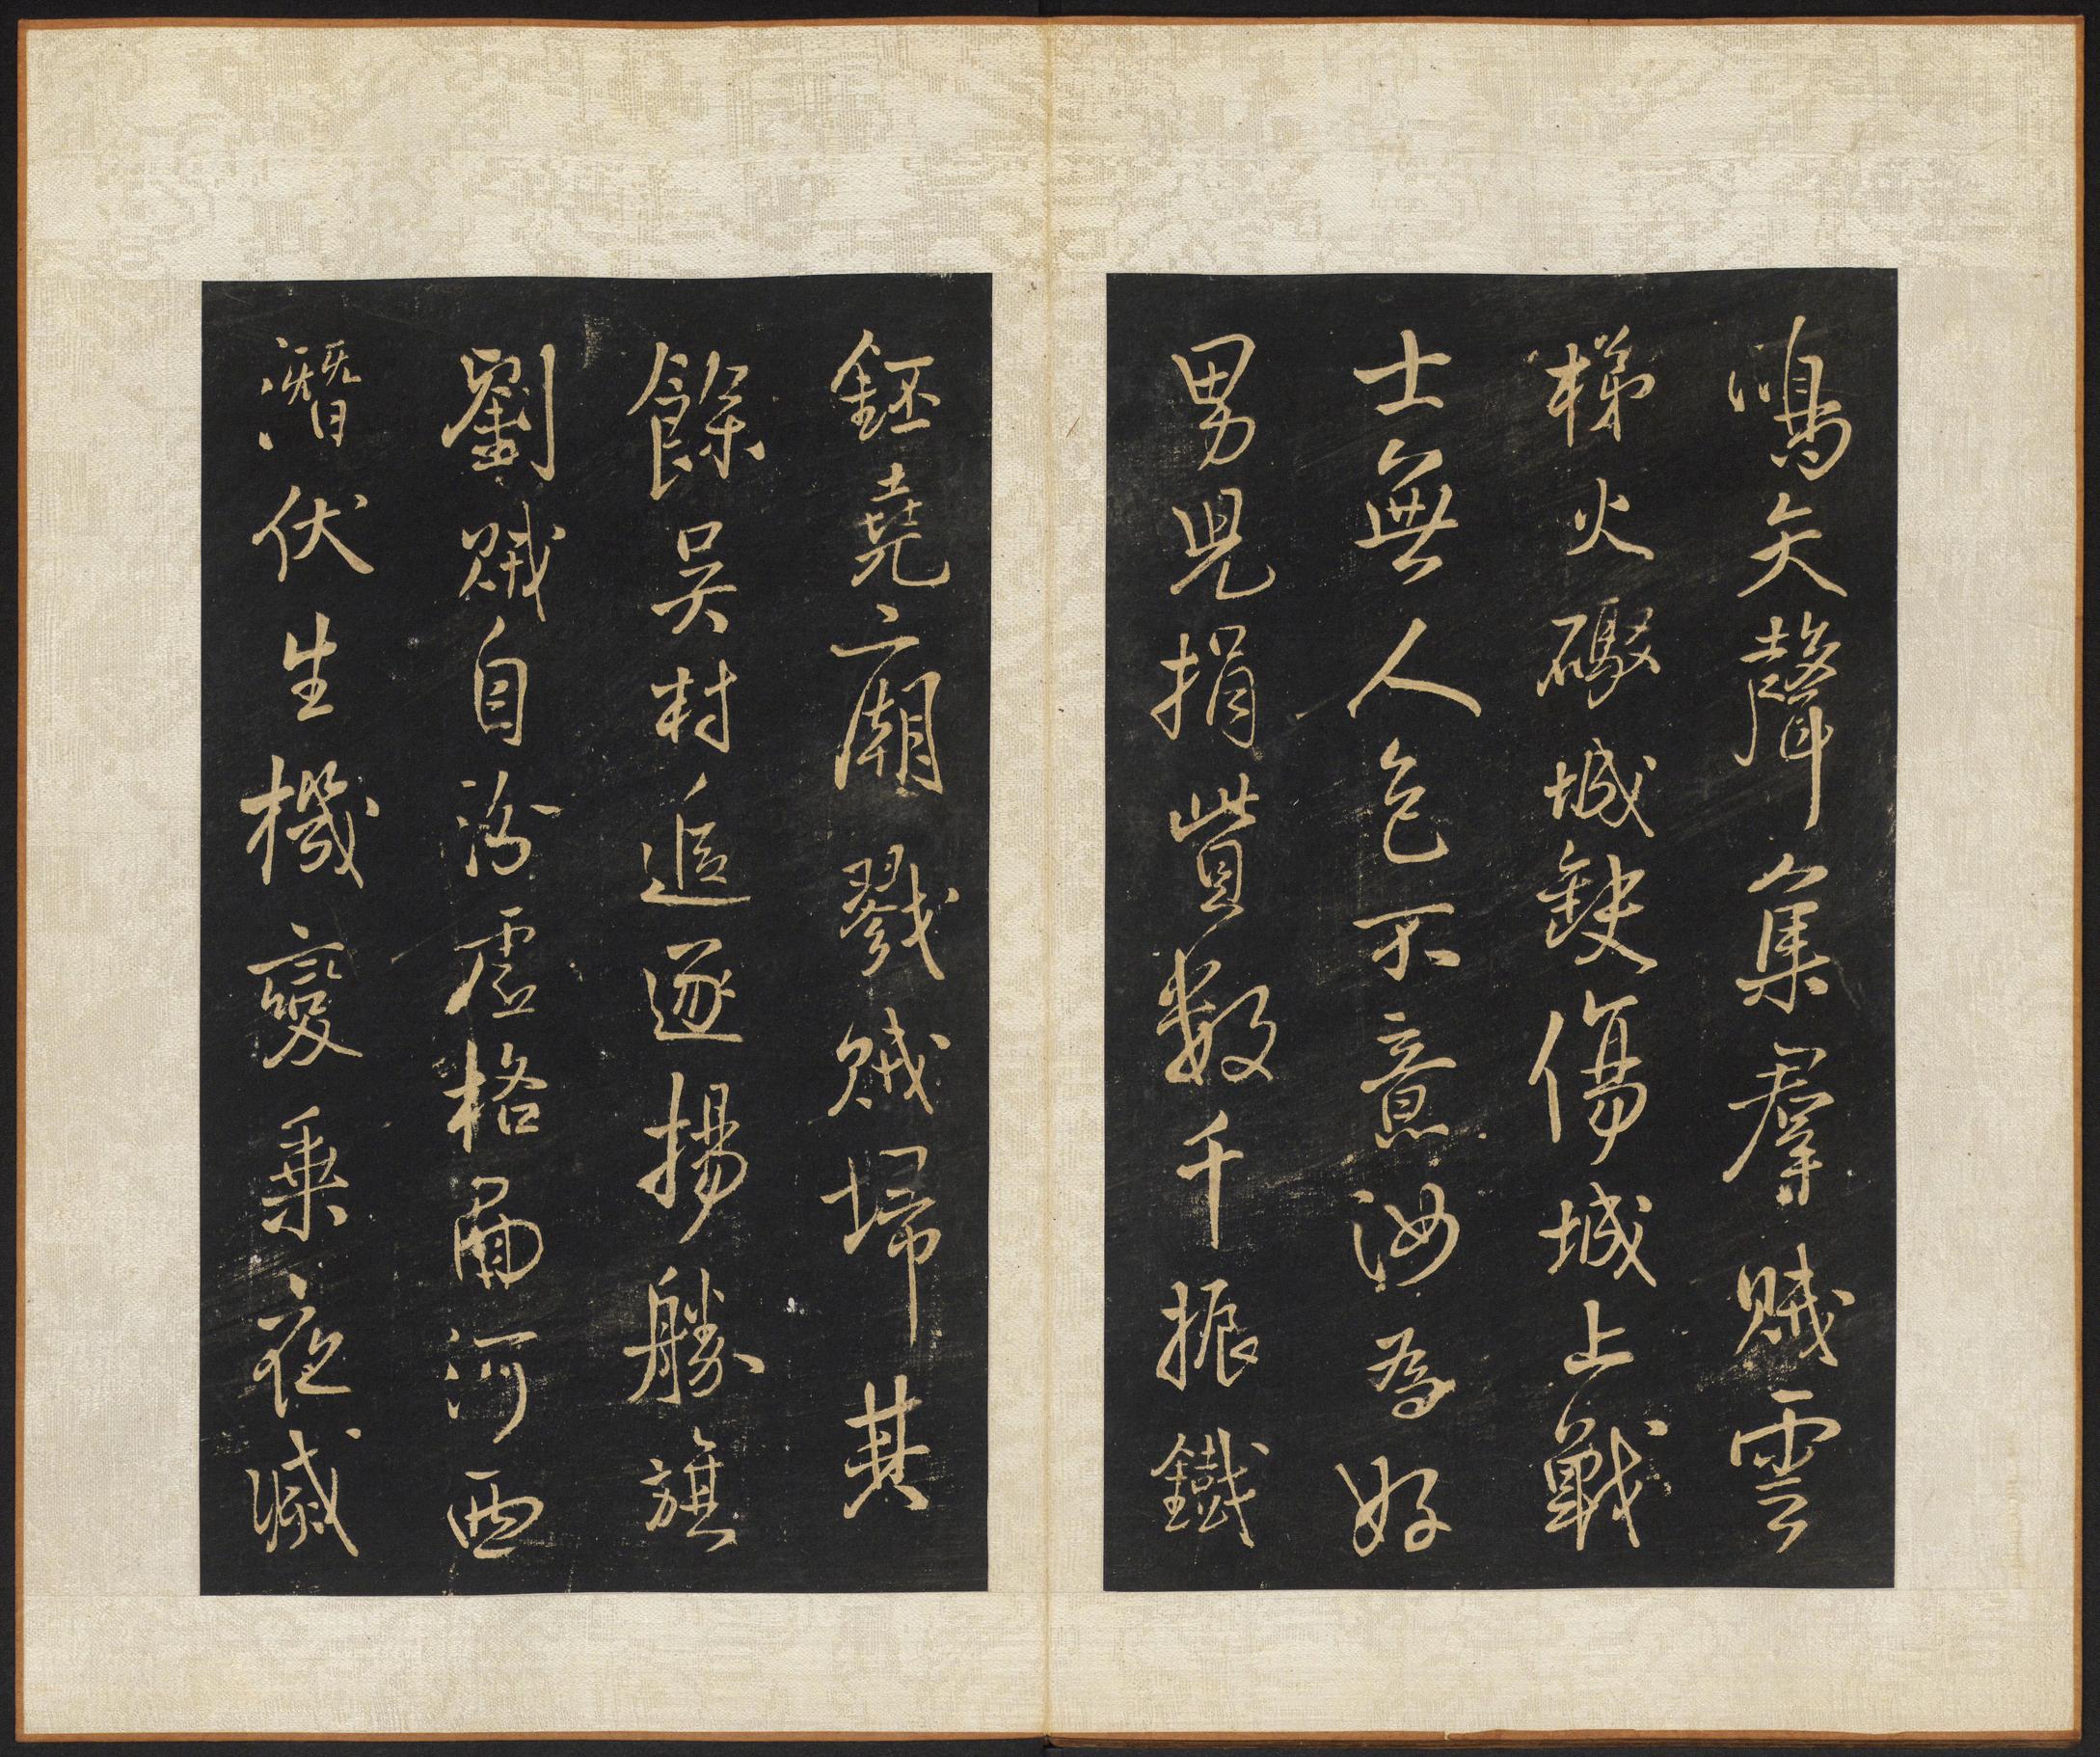 鳴矢聲集羣賊雲
梯火礮城缺傷城上戰
士無人色不意汝為好
男兒捐貲數千振鐵
鉦堯廟戮賊歸其
餘吳村追逐揚勝旗
劉賊自汾虛格鬭河西
潛伏生機變乘夜滅